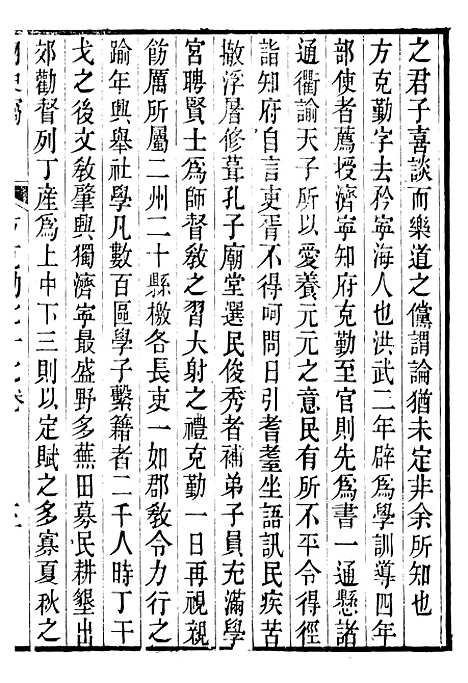 之君子喜談而樂道之儻謂論猶未定非余所知也
方克勤字去矜寧海人也洪武二年辟為學訓導四年
部使者薦授濟寧知府克勤至官則先為書一通懸諸
通衢諭天子所以愛養元元之意民有所不平令得徑
詣知府自言吏胥不得呵問日引耆耋坐語訊民疾苦
撤浮屠修葺孔子廟堂選民俊秀者補弟子員充滿學
宮聘賢士為師督教之習大射之禮克勤一日再視親
飭厲所屬二州二十縣檄各長吏一如郡教令力行之
踰年興舉社學凡數百區學子繫籍者二千人時丁干
戈之後文教肇興獨濟寧最盛野多蕪田募民耕墾出
郊勸督列丁產為上中下三則以定賦之多寡夏秋之